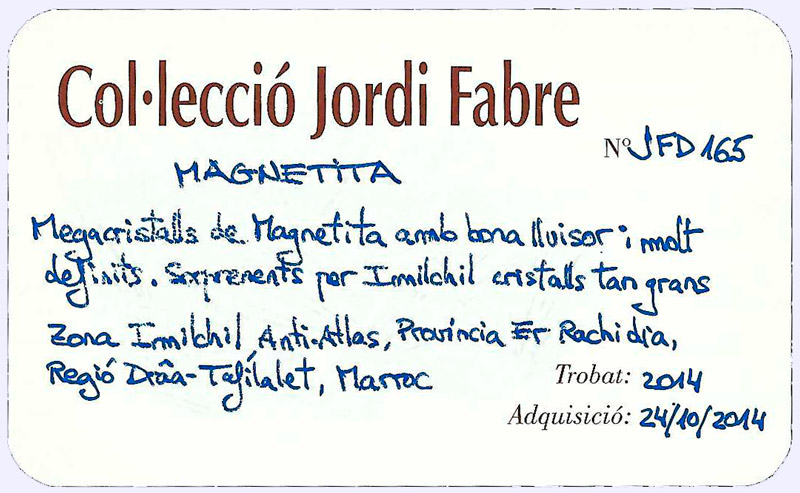 Col·lecció Jordi Fabre
Nº JFD 165
MAGNETITA
Megacristalls de Magnetita amb bona lluisor i molt
definits. Sorprenents per Irmilchil cristalls tan grans
Zona Irmilchil, Anti-Atlas, Província Er Rachidia,
Regió Drâa-Tafilalet, Marroc
Trobat: 2014
Adquisició: 24/10/2014